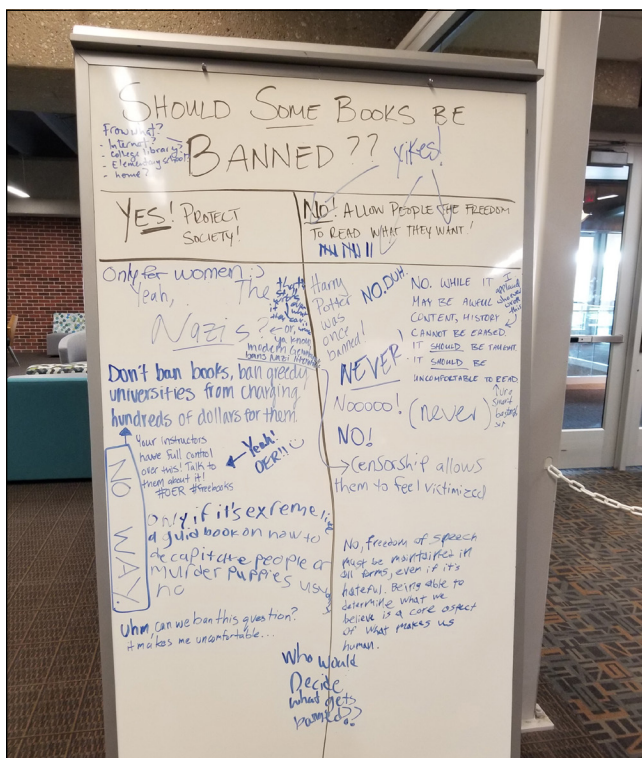 SHOULD SOME BOOKS BE
BANNED??
yikes!
From what?
- Internet?
- College library?
- Elementary school?
- home?
YES! PROTECT
SOCIETY!
NO! ALLOW PEOPLE THE FREEDOM
TO READ WHAT THEY WANT!
Only for women is
Yeah, The
Nazis? ← or,
ya know,
modern
bans Nazi
Don't ban books, ban greedy
universities from charging
hundreds of dollars for them.
Your instructors
have full control
over this! Talk to
them about it!
#OER #freebooks
← Yeah!
OER!!
NO WAY.
Only if it's exreme like
a guid book on how to
decapitate people or
murder puppies
no
Uhm, can we ban this question?
it makes me uncomfortable...
Harry
Potter
was
once
banned!
NO, DUH.
NEVER!
Nooooo!
(never)
NO!
NO. WHILE IT
MAY BE AWFUL
CONTENT, HISTORY
CANNOT BE ERASED.
· IT SHOULD BE TAUGHT.
· IT SHOULD BE
UNCOMFORTABLE TO READ
I
applaud
whoever
wrote
this
↑
smart
→ Censorship allows
them to feel victimized
No, freedom of speech
must be maintained in
all forms, even if it's
hateful. Being able to
determine what we
believe is a core aspect
of what makes us
human.
Who would
Decide
what gets
banned??